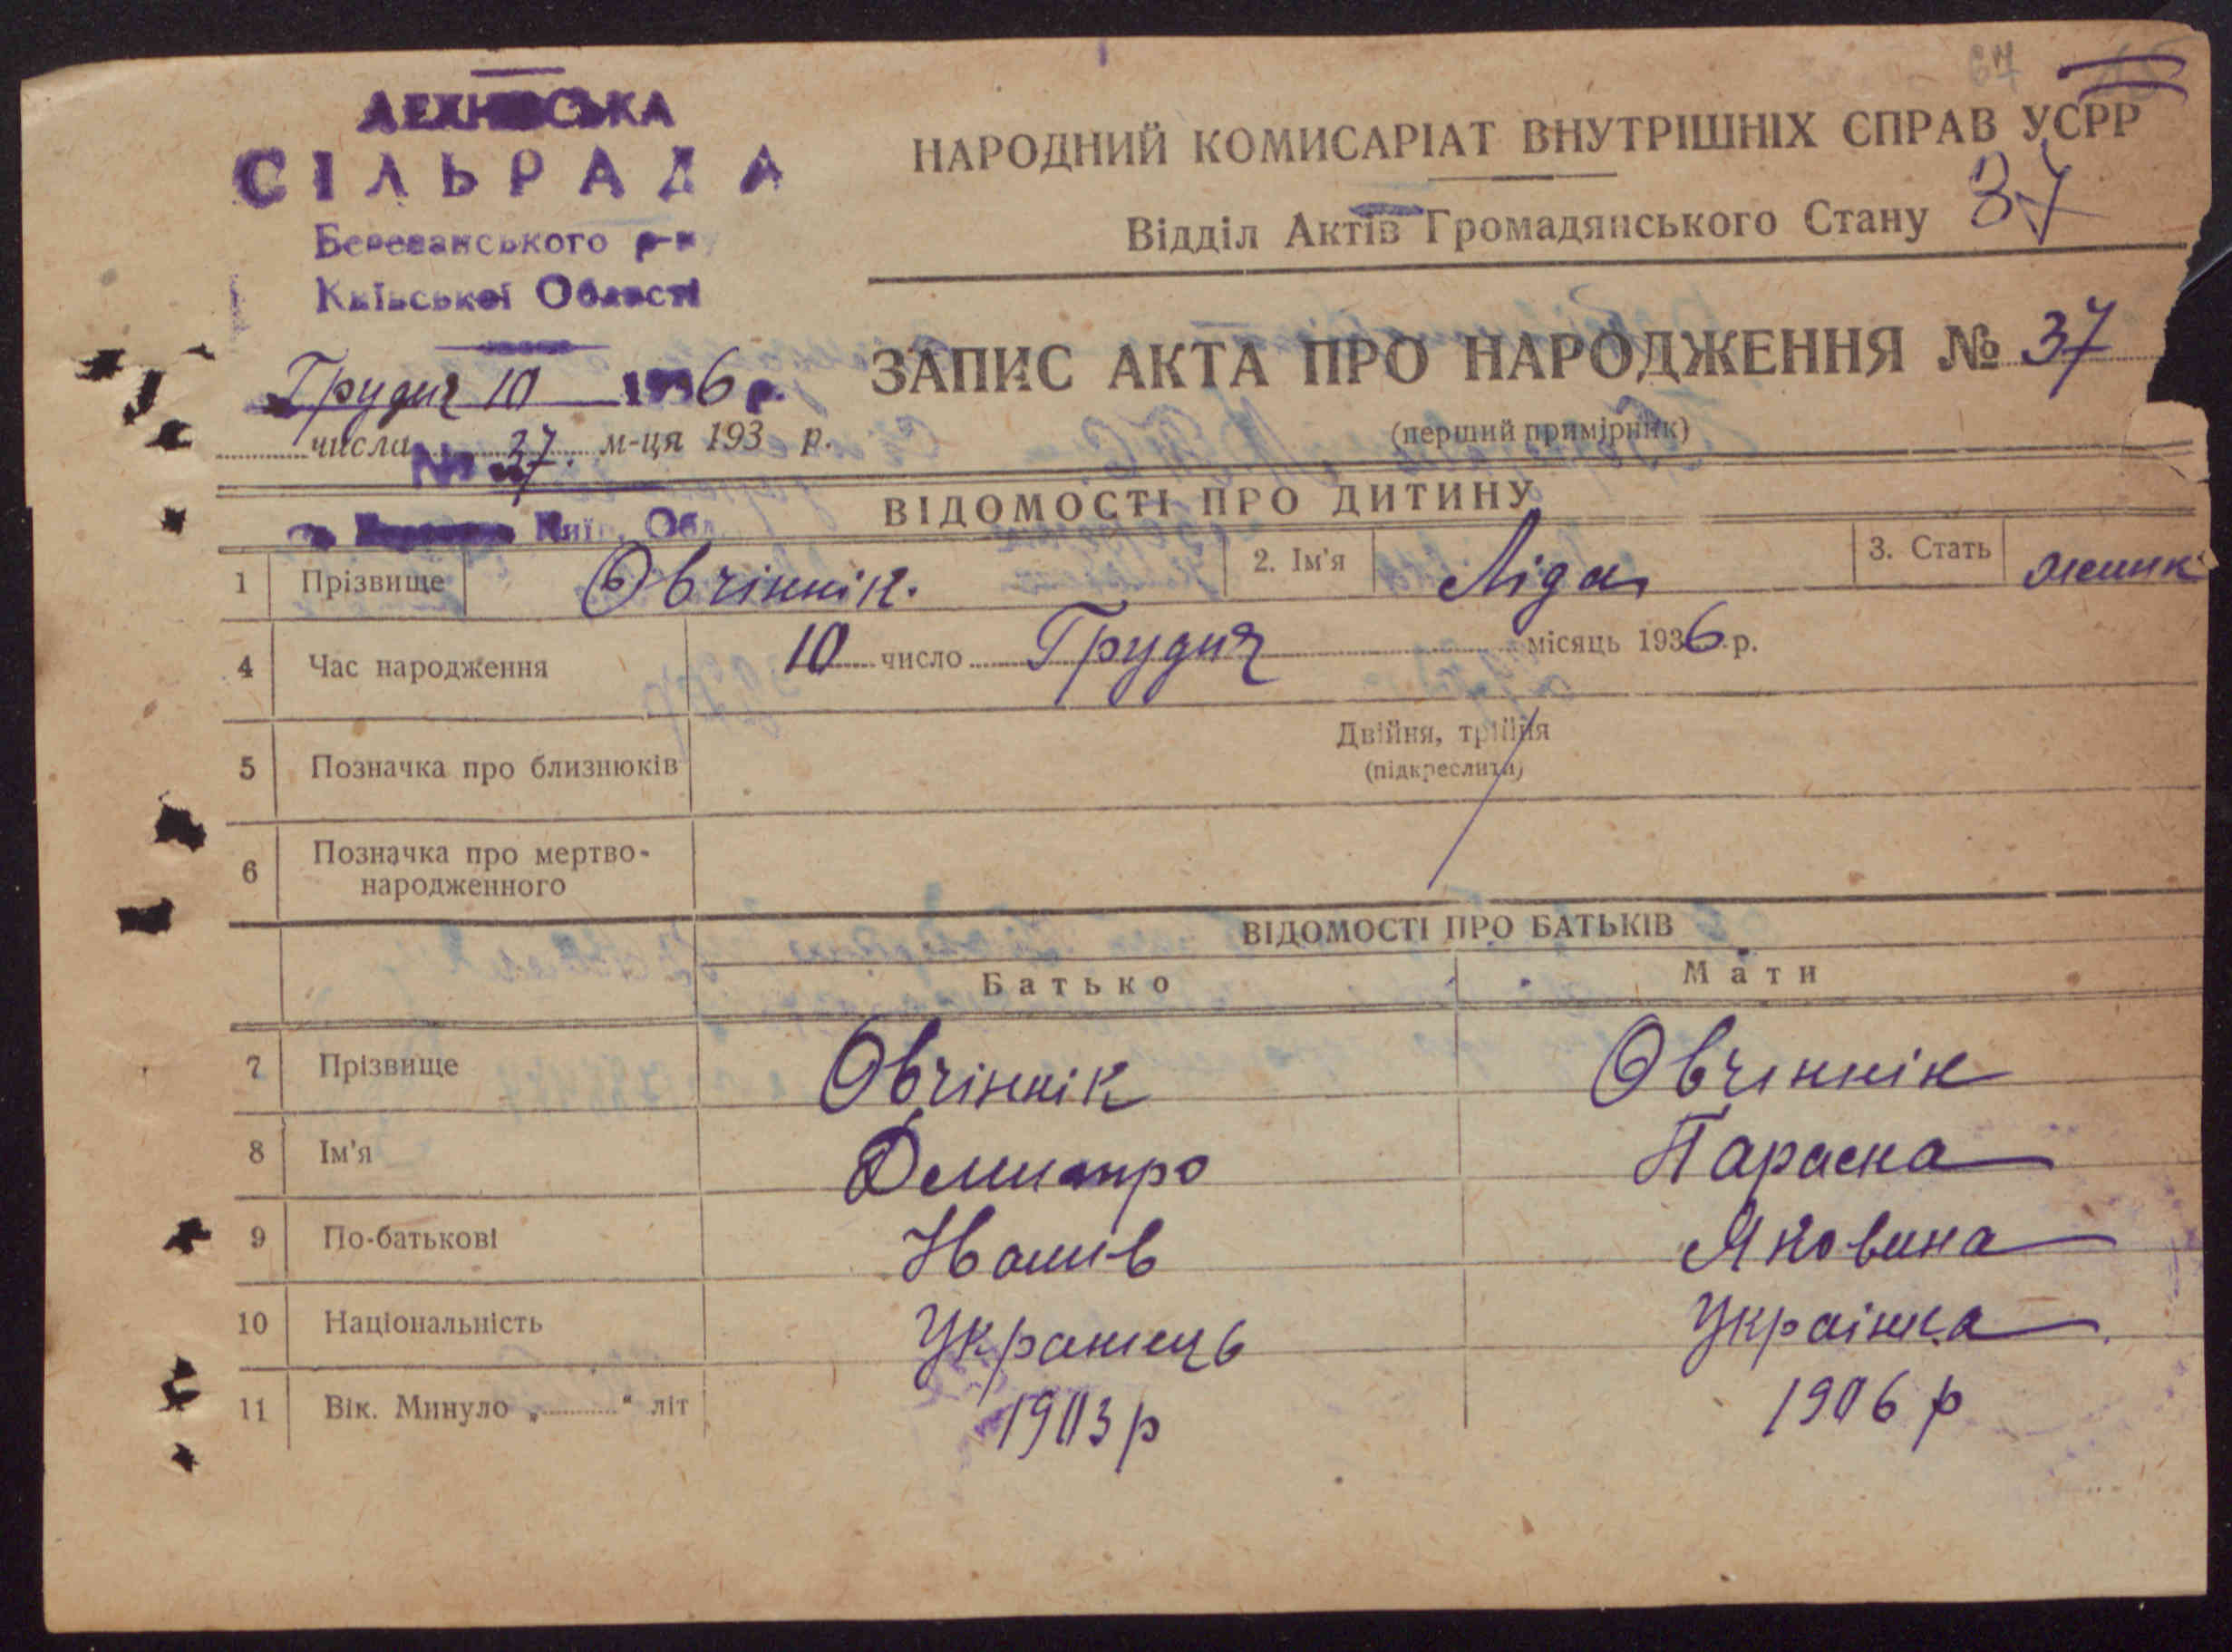 СІЛЬРАДА
Київської Області
Грудня 10 1936 р.
числа № 37. м-ця 193 р.
Київ. Обл.
67
НАРОДНИЙ КОМИСАРІАТ ВНУТРІШНІХ СПРАВ УСРР
Відділ Актів Громадянського Стану 37
ЗАПИС АКТА ПРО НАРОДЖЕННЯ № 37
(перший примірник)
ВІДОМОСТІ ПРО ДИТИНУ
1 Прізвище Овчіннік. 2. Ім'я Ліда 3. Стать жинк
4 Час народження 10 число Грудня місяць 1936 р.
5 Позначка про близнюків Двійня, трійня
(підкреслити)
6 Позначка про мертво-
народженного
ВІДОМОСТІ ПРО БАТЬКІВ
Батько Мати
7 Прізвище Овчіннік Овчіннік
8 Ім'я Демитро Параска
9 По-батькові Яковина
10 Національність Українець Українка
11 Вік. Минуло „ “ літ 1903 р 1906 р